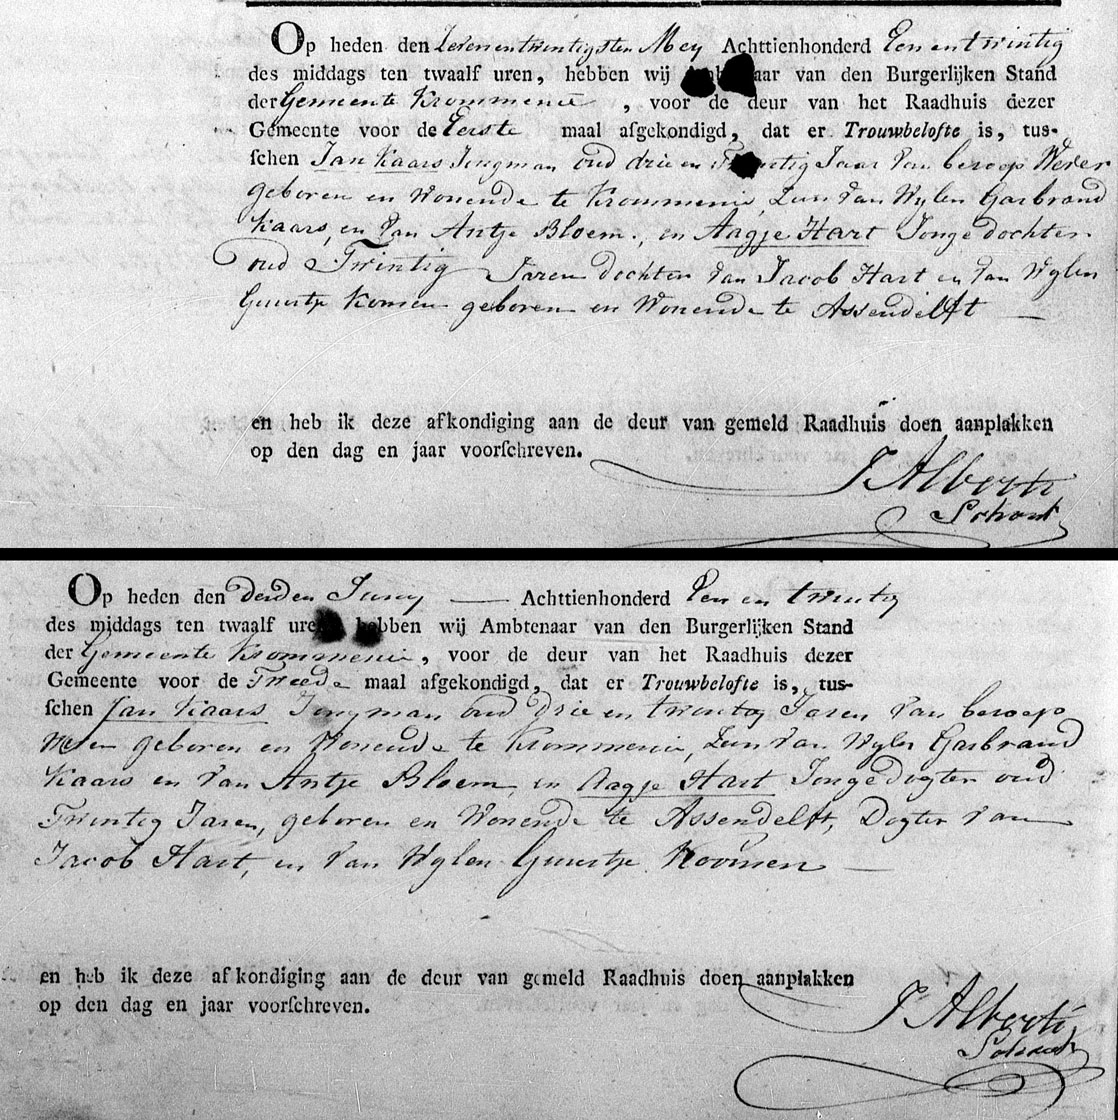 Op heden den Sevenentwintigsten Mey Achttienhonderd Een en twintig
des middags ten twaalf uren, hebben wij Ambtenaar van den Burgerlijken Stand
der Gemeente Krommenie , voor de deur van het Raadhuis dezer
Gemeente voor de Eerste maal afgekondigd, dat er Trouwbelofte is, tus-
schen Jan Kaars Jongman oud drie en Twintig Jaar Van beroep Wever
geboren en Wonende te Krommenie, Zun Van Wylen Garbrand
Kaars, en Van Antje Bloem, en Aagje Hart Jonge Dochter
oud Twintig Jaren dochter Van Jacob Hart en Van Wylen
Guurtje Komen geboren en Wonende te Assendelft —
en heb ik deze afkondiging aan de deur van gemeld Raadhuis doen aanplakken
op den dag en jaar voorschreven.
J Alberti
Schout
Op heden den Derden Juny — Achttienhonderd Een en twintig
des middags ten twaalf uren hebben wij Ambtenaar van den Burgerlijken Stand
der Gemeente Krommenie, voor de deur van het Raadhuis dezer
Gemeente voor de Tweede maal afgekondigd, dat er Trouwbelofte is, tus-
schen Jan Kaars Jongman oud drie en twintig Jaren Van beroep
Wever geboren en Wonende te Krommenie, Zun Van Wylen Garbrand
Kaars en Van Antje Bloem, en Aagje Hart Jonge Dogter oud
Twintig Jaren, geboren en Wonende te Assendelft, Dogter Van
Jacob Hart, en Van Wylen Guurtje Koomen —
en heb ik deze afkondiging aan de deur van gemeld Raadhuis doen aanplakken
op den dag en jaar voorschreven.
J Alberti
Schout